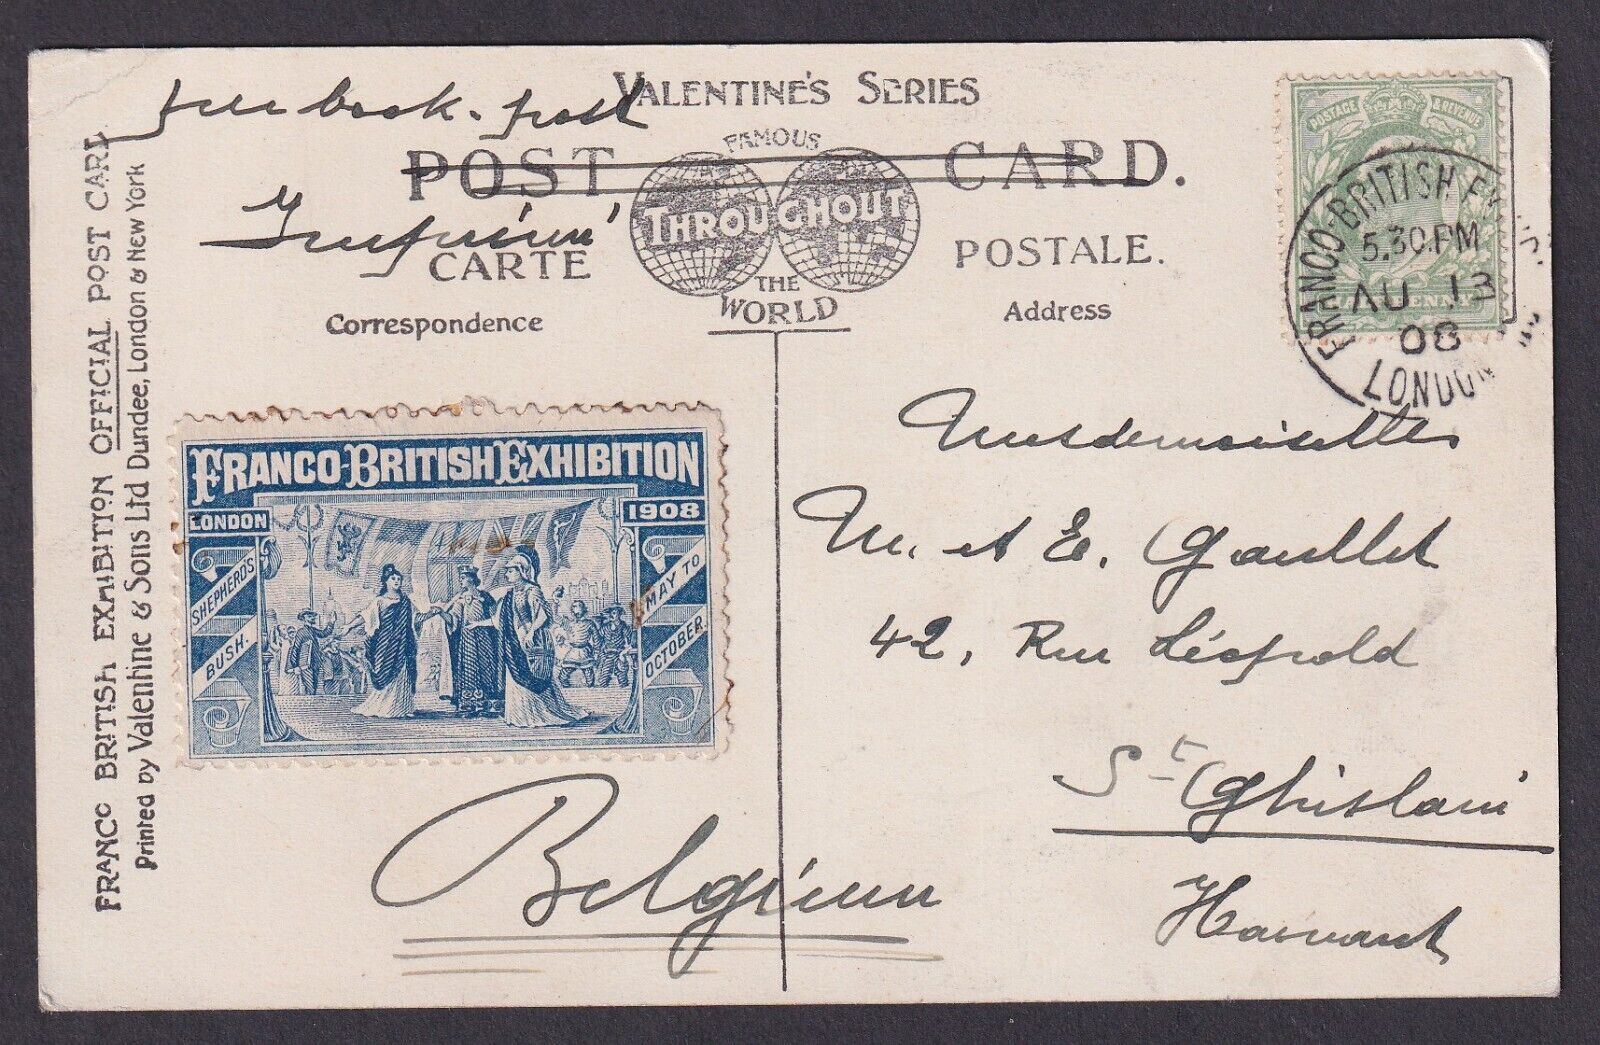 VALENTINE'S SERIES
per book-post
FAMOUS
POST CARD.
THROUGHOUT
Imprimé
CARTE POSTALE.
THE
WORLD
Correspondence
Address
FRANCO BRITISH EXHIBITION OFFICIAL POST CARD
Printed by Valentine & Sons Ltd Dundee, London & New York
POSTAGE & REVENUE
FRANCO-BRITISH EX
5.30.PM
AU 13
08
LONDON
FRANCO-BRITISH EXHIBITION
LONDON 1908
SHEPHERD'S BUSH.
MAY TO OCTOBER.
Mesdemoiselles
M. et E. Goullet
42, Rue Léopold
St Ghislain
Hainaut
Belgium